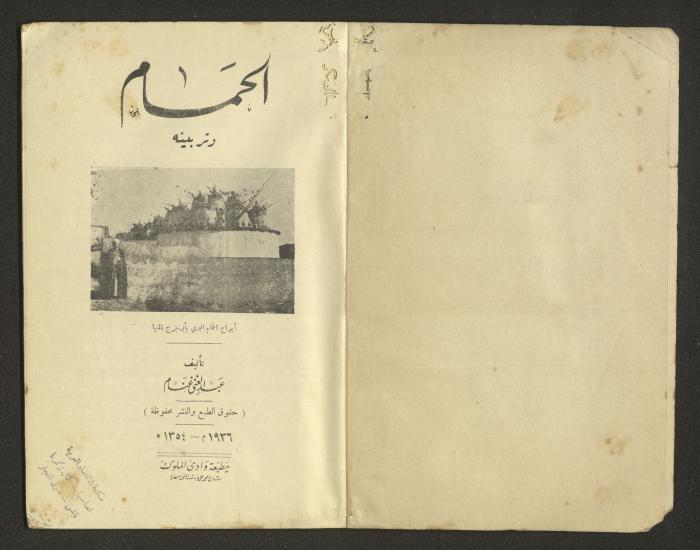 الحمام
وتربيته
أبراج الحمام البري بأبى جرج بالمنيا
تأليف
عبد الغنى غنام
( حقوق الطبع والنشر محفوظة )
١٩٣٦ م — ١٣٥٤ ه
مطبعة وادى الملوك